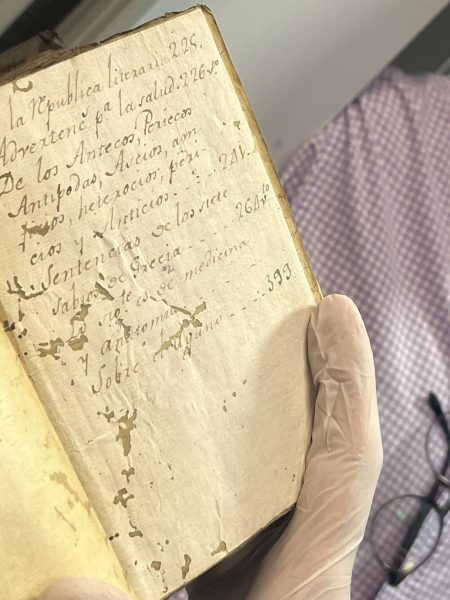 la República literaria 225.
Advertenc.s p.a la salud. 226 v.o
De los Antecos, Periecos
Antipodas, Ascios, am
fios, heteroscios, peris
cios y Anticios - - - 241.
Sentencias de los siete
sabios de Grecia - - - - 264 v.to
de medicina
y anatomia
Sobre el Ayuno - - - - 399